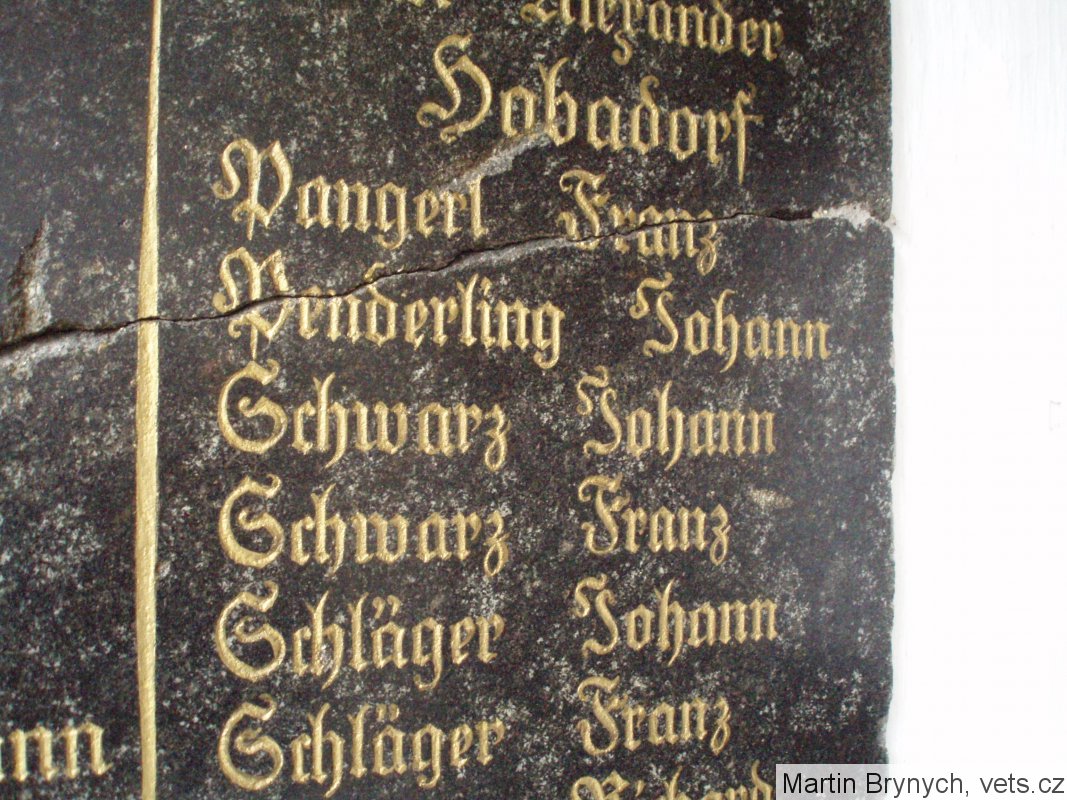 Alexander
Hobadorf
Pangerl Franz
Penderling Johann
Schwarz Johann
Schwarz Franz
Schläger Johann
Schläger Franz
Martin Brynych, vets.cz